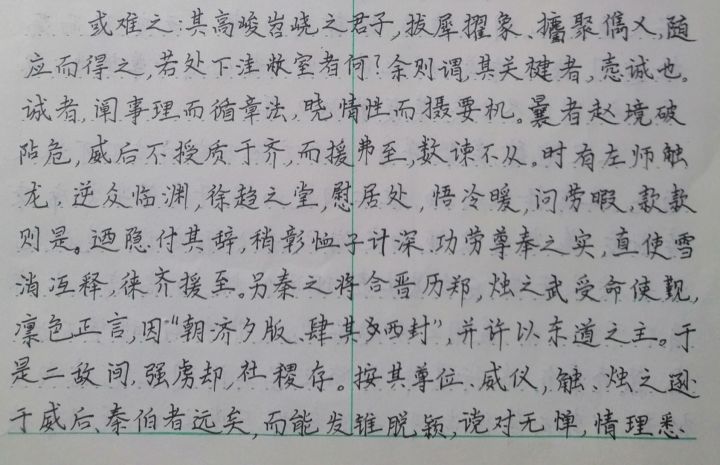 或难之:其高峻岧峣之君子,拔犀擢象、攟聚儁乂,随
应而得之,若处下洼敝室者何?余则谓,其关楗者,悫诚也。
诚者,阐事理而循章法,晓情性而摄要机。曩者赵境破
阽危,威后不授质于齐,而援弗至,数谏不从。时有左师触
龙,逆众临渊,徐趋之堂,慰居处,悟冷暖,问劳暇,款款
则是。迺隐付其辞,稍彰恤子计深、功劳尊奉之实,直使雪
消冱释,徕齐援至。另秦之将合晋历郑,烛之武受命使觐,
凛色正言,因“朝济夕版、肆其西封”,并许以东道之主。于
是二敌间,强虏却,社稷存。按其尊位、威仪,触、烛之逊
于威后、秦伯者远矣,而能发锥脱颖,谠对无惮,情理悉